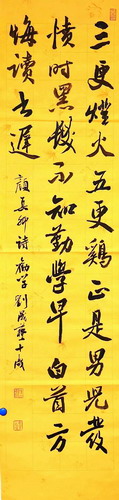 三更燈火五更鷄正是男兒發
憤時黑髮不知勤學早白首方
悔讀書遲
顏真卿詩勸学 劉成